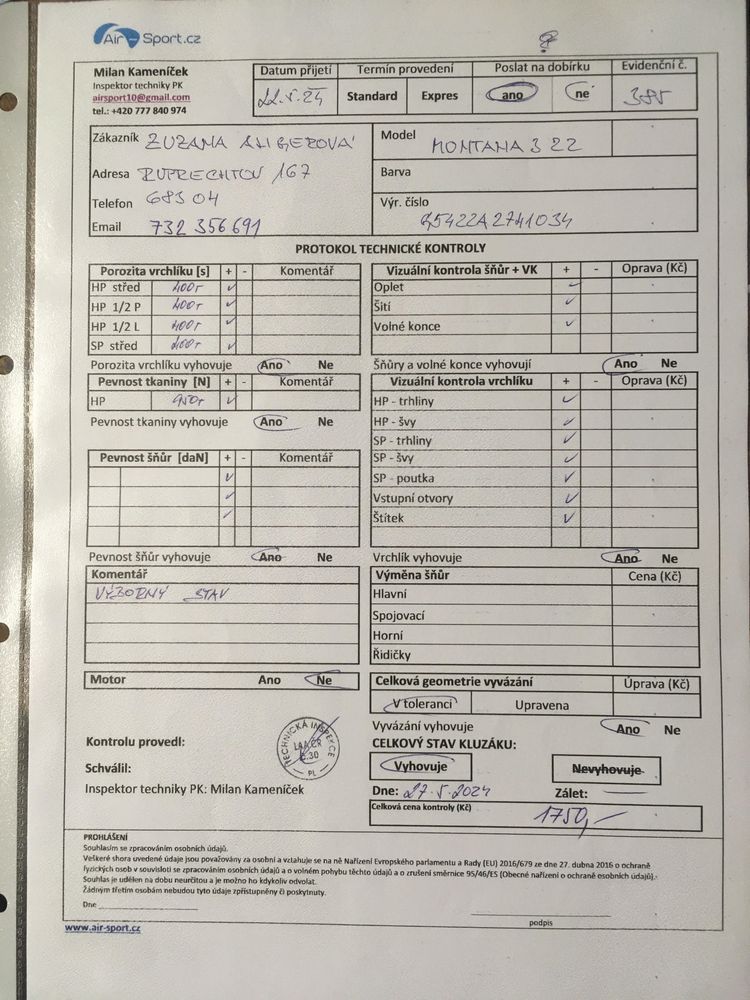 Air-Sport.cz
Milan Kameníček
Inspektor techniky PK
airsport10@gmail.com
tel.: +420 777 840 974
Datum přijetí Termín provedení Poslat na dobírku Evidenční č.
22.5.24 Standard Expres ano ne
Zákazník ZUZANA
Adresa RUPRECHTOV 167
Telefon 683 04
Email 732 356 691
Model MONTANA 3 22
Barva
Výr. číslo
PROTOKOL TECHNICKÉ KONTROLY
Porozita vrchlíku [s] + - Komentář
HP střed 400+ ✓
HP 1/2 P 400+ ✓
HP 1/2 L 400+ ✓
SP střed 400+ ✓
Porozita vrchlíku vyhovuje Ano Ne
Pevnost tkaniny [N] + - Komentář
HP ✓
Pevnost tkaniny vyhovuje Ano Ne
Pevnost šňůr [daN] + - Komentář
✓
✓
✓
Pevnost šňůr vyhovuje Ano Ne
Komentář
VÝBORNÝ STAV
Motor Ano Ne
Vizuální kontrola šňůr + VK + - Oprava (Kč)
Oplet ✓
Šití ✓
Volné konce ✓
Šňůry a volné konce vyhovují Ano Ne
Vizuální kontrola vrchlíku + - Oprava (Kč)
HP - trhliny ✓
HP - švy ✓
SP - trhliny ✓
SP - švy ✓
SP - poutka ✓
Vstupní otvory ✓
Štítek ✓
Vrchlík vyhovuje Ano Ne
Výměna šňůr Cena (Kč)
Hlavní
Spojovací
Horní
Řidičky
Celková geometrie vyvázání Úprava (Kč)
V toleranci Upravena
Vyvázání vyhovuje Ano Ne
CELKOVÝ STAV KLUZÁKU:
Vyhovuje Nevyhovuje
Dne: 27.5.2024 Zálet:
Celková cena kontroly (Kč) 1750,-
Kontrolu provedl:
Schválil:
Inspektor techniky PK: Milan Kameníček
TECHNICKÁ INSPEKCE
LAA ČR
PL
PROHLÁŠENÍ
Souhlasím se zpracováním osobních údajů.
Veškeré shora uvedené údaje jsou považovány za osobní a vztahuje se na ně Nařízení Evropského parlamentu a Rady (EU) 2016/679 ze dne 27. dubna 2016 o ochraně
fyzických osob v souvislosti se zpracováním osobních údajů a o volném pohybu těchto údajů a o zrušení směrnice 95/46/ES (Obecné nařízení o ochraně osobních údajů).
Souhlas je udělen na dobu neurčitou a je možno ho kdykoliv odvolat.
Žádným třetím osobám nebudou tyto údaje zpřístupněny či poskytnuty.
Dne
podpis
www.air-sport.cz